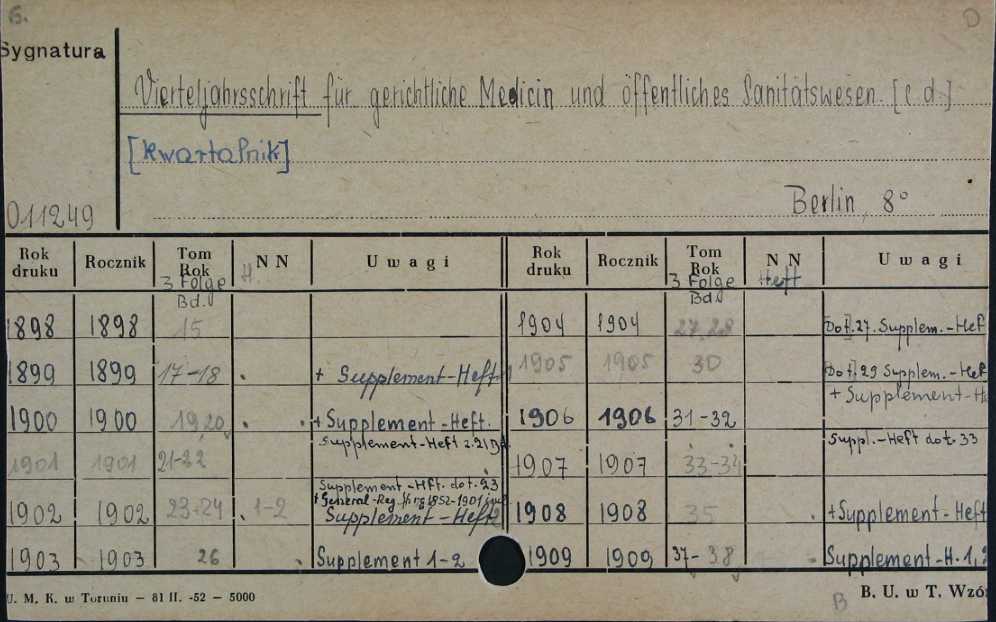 G. D
Sygnatura
Vierteljahrsschrift für gerichtliche Medicin und öffentliches Sanitätswesen. [c.d.]
[kwartalnik]
011249 Berlin, 8°
Rok druku Rocznik Tom Rok 3 Folge Bd. H. NN Uwagi Rok druku Rocznik Tom Rok 3 Folge Bd. NN Heft Uwagi
1898 1898 15 1904 1904 27,28 Dot. 27. Supplem.-Hef
1899 1899 17-18 + Supplement-Heft 1905 1905 30 Dot. 29 Supplem.-Hef
+ Supplement-H
1900 1900 19,20 + Supplement-Heft. 1906 1906 31-32
1901 1901 21-22 Supplement-Heft z. 21 1907 1907 33-34 Suppl.-Heft dot. 33
Supplement-Hft. dot. 23
+ General-Reg. 1852-1901
1902 1902 23-24 1-2 Supplement-Heft 1908 1908 35 + Supplement-Heft
1903 1903 26 Supplement 1-2 1909 1909 37-38 Supplement-H. 1,2
U. M. K. w Toruniu — 81 II. -52 — 5000 B B. U. w T. Wzó